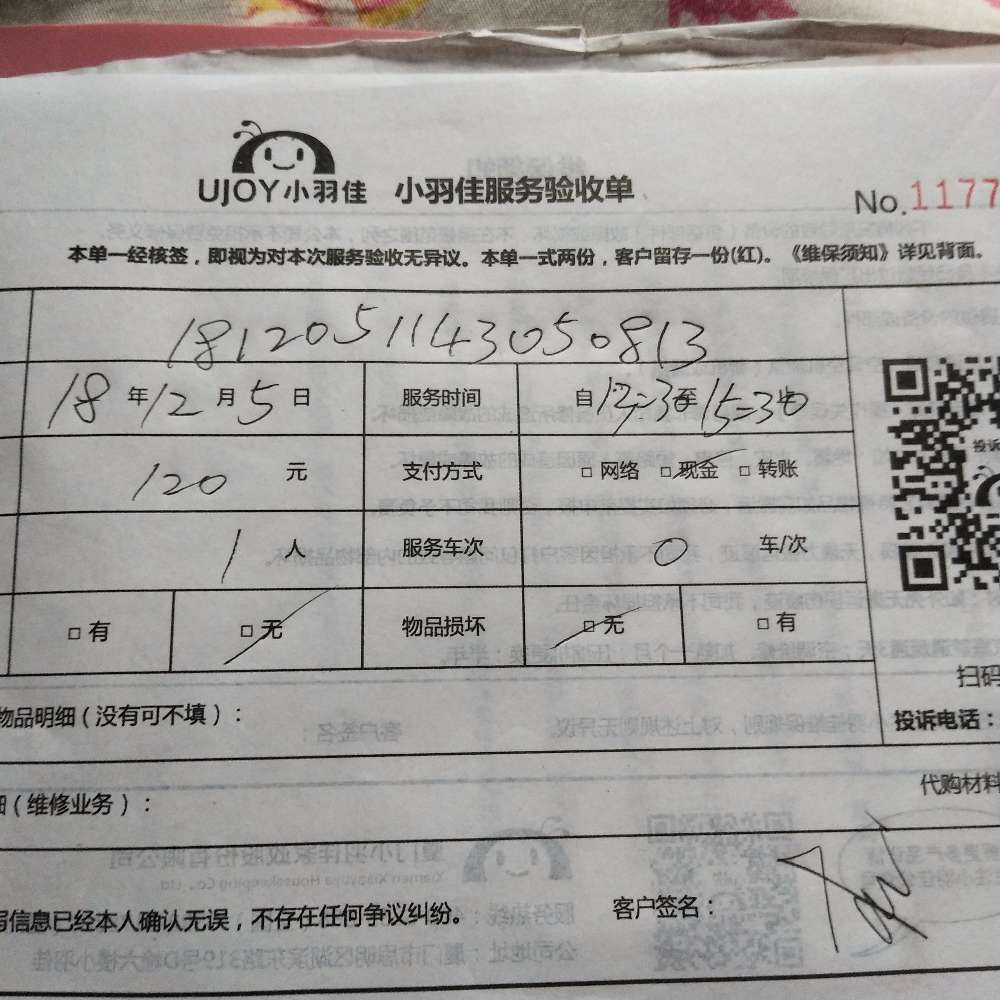 UJOY小羽佳 小羽佳服务验收单
No.1177
本单一经核签，即视为对本次服务验收无异议。本单一式两份，客户留存一份(红)。《维保须知》详见背面。
1812051143050813
18年12月5日 服务时间 自12:30至15:30止
120元 支付方式 □网络 □现金 □转账
1人 服务车次 0 车/次
□有 □无 物品损坏 □无 □有
扫码
物品明细（没有可不填）：
投诉电话：
代购材料
细（维修业务）：
写信息已经本人确认无误，不存在任何争议纠纷。 客户签名：